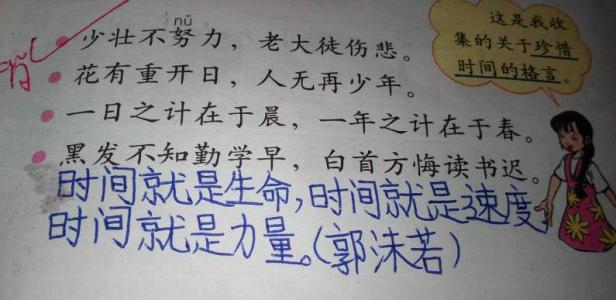 这是我收
集的关于珍惜
时间的格言。
nǔ
少壮不努力，老大徒伤悲。
花有重开日，人无再少年。
一日之计在于晨，一年之计在于春。
黑发不知勤学早，白首方悔读书迟。
时间就是生命，时间就是速度，
时间就是力量。（郭沫若）